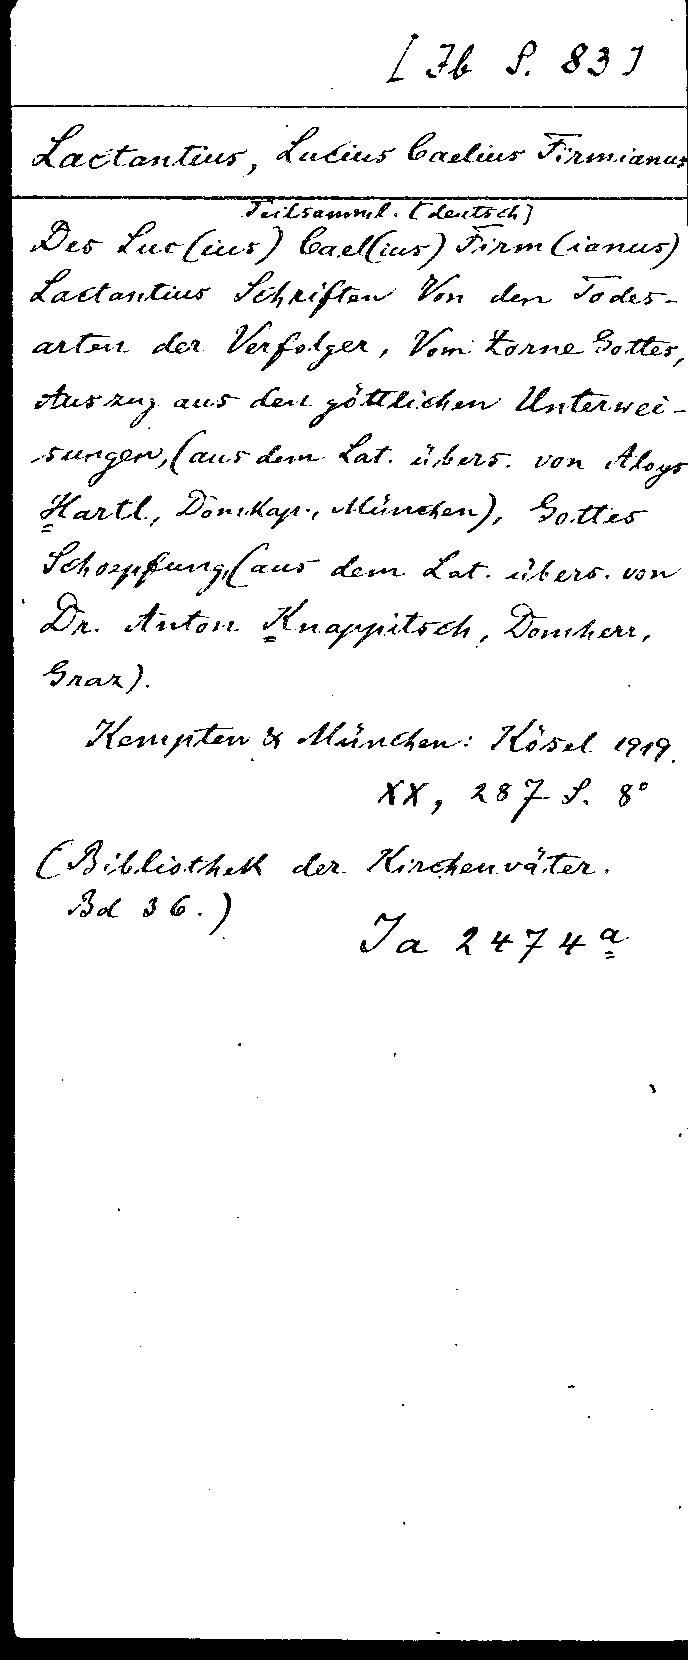 [Ib S. 83]
Lactantius, Lucius Caelius Firmianus
Teilsamml. [deutsch]
Des Luc(ius) Cael(ius) Firm(ianus)
Lactantius Schriften Von den Todes-
arten der Verfolger, Vom Zorne Gottes,
Auszug aus den göttlichen Unterwei-
sungen, (aus dem Lat. übers. von Aloys
Hartl, Domkap., München), Gottes
Schoepfung, (aus dem Lat. übers. von
Dr. Anton Knappitsch, Domherr,
Graz).
Kempten & München: Kösel 1919.
XX, 287 S. 8°
(Bibliothek der Kirchenväter.
Bd 36.)
Ia 2474a